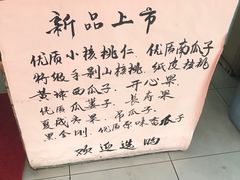 新品上市
优质小核桃仁 优质南瓜子
特级手剥山核桃、纸皮核桃
黄绿西瓜子、开心果
优质瓜蒌子、长寿果
夏威夷果、吊瓜子、
黑金刚、优质原味香瓜子
欢迎选购